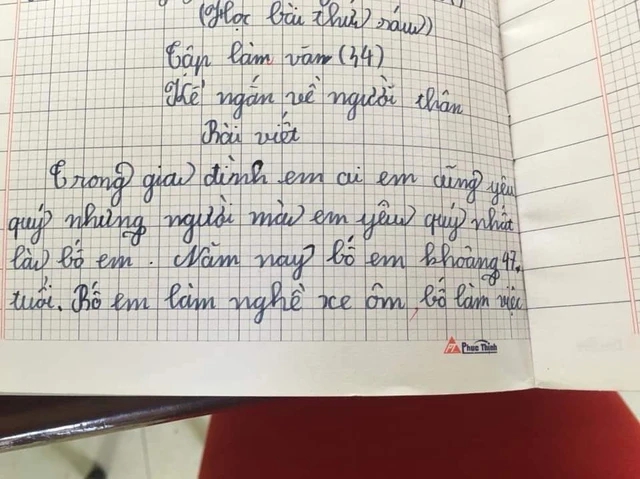 (Học bài thứ sáu)
Tập làm văn (34)
Kể ngắn về người thân
Bài viết
Trong gia đình em ai em cũng yêu
quý nhưng người mà em yêu quý nhất
là bố em. Năm nay bố em khoảng 47
tuổi. Bố em làm nghề xe ôm, bố làm việc
PT Phuc Thinh